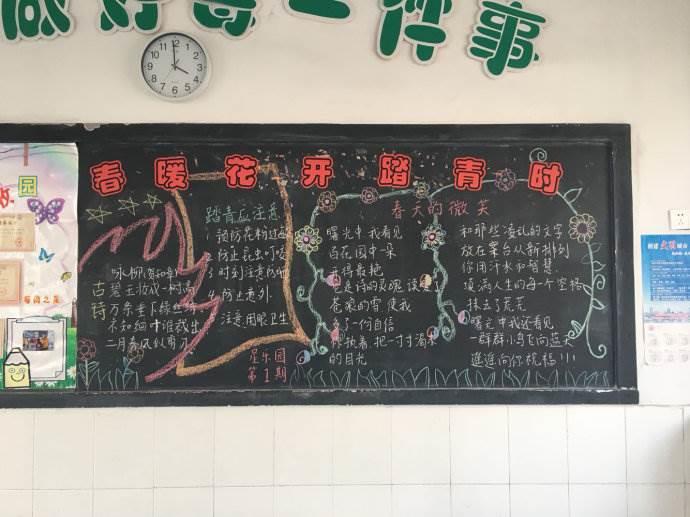 做好每一件事
春暖花开踏青时
园
古诗
咏柳(贺知章)
碧玉妆成一树高
万条垂下绿丝绦
不知细叶谁裁出
二月春风似剪刀
踏青应注意
1.预防花粉过敏
2.防止昆虫叮咬
3.时刻注意防晒
4.防止意外
注意用眼卫生
星乐园
第1期
春天的微笑
曙光中我看见
百花园中一朵
开得最艳
是诗的灵魂 读懂了
苍翠的雪 使我
多了一份自信
执着 把一寸寸渴求
的目光
和那些凌乱的文字
放在案台从新排列
你用汗水和智慧
填满人生的每一个空格
抹去了荒芜
曙光中我还看见
一群群小鸟飞向蓝天
进进向你祝福!!!